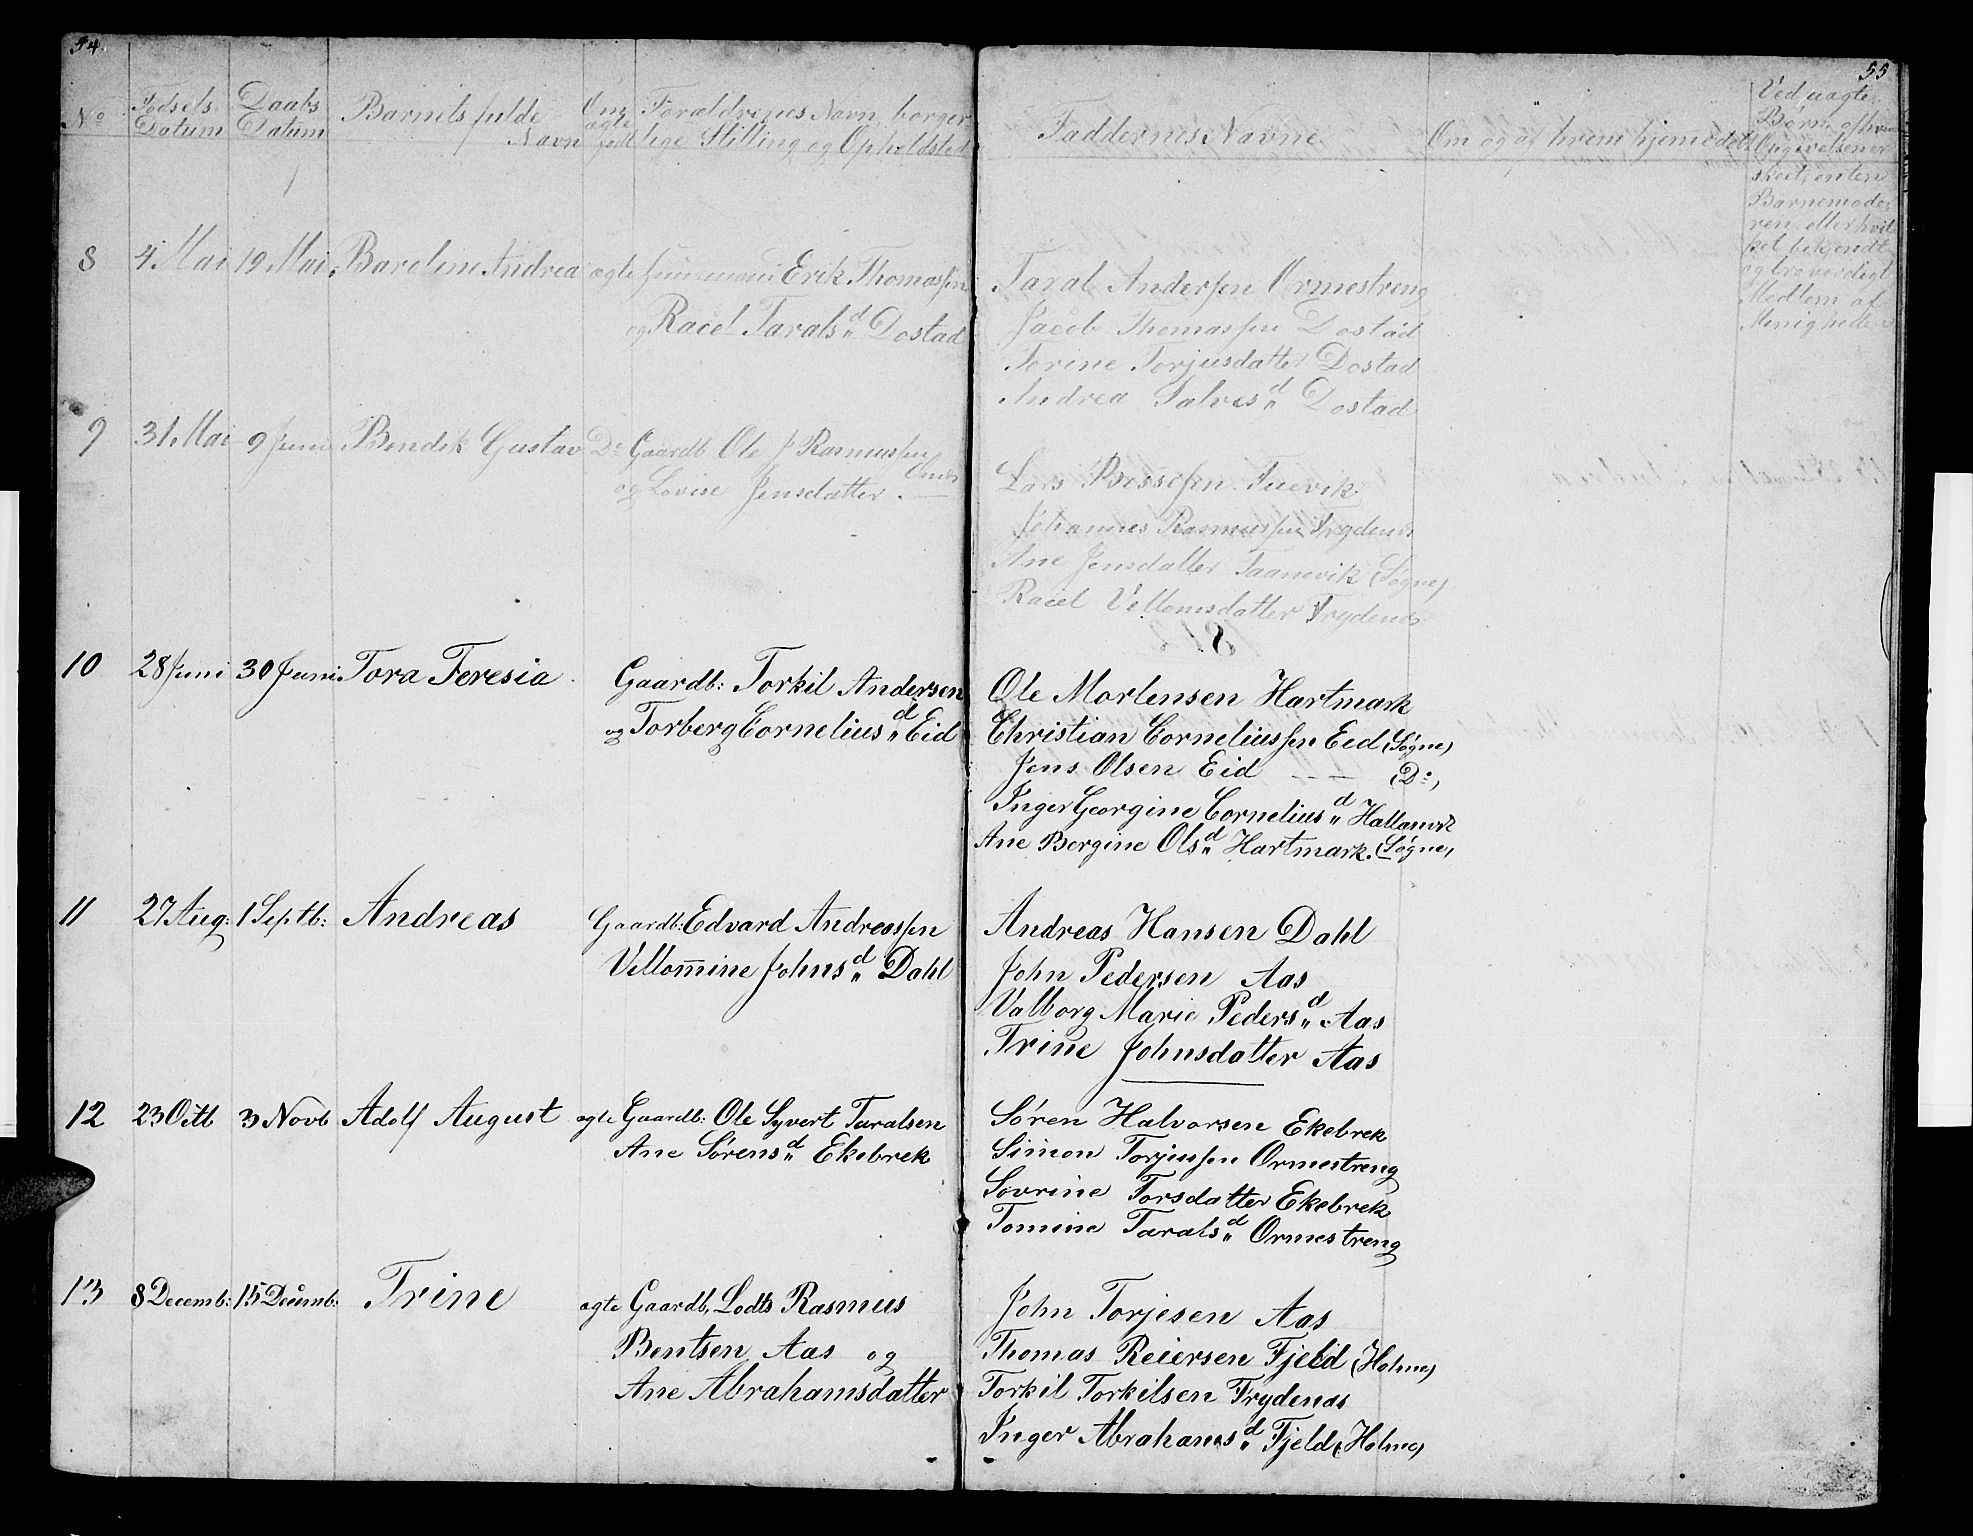 54
No
Fødsels
Datum
Daabs
Datum
Barnets fulde
Navn
Om
ægte
født
Forældrenes Navn, borger
lige Stilling og Opholdsted
8
4 Mai
19 Mai
Baroline Andrea
ægte
Erik Thomassen
og Racel Tarals d. Dostad
9
31 Mai
9 Juni
Bendik Gustav
Do
Gaardb Ole J Rasmussen
og Lovise Jensdatter
10
28 Juni
30 Juni
Tora Teresia
Gaardb: Torkil Andersen
og Torberg Cornelius d. Eid
11
27 Aug:
1 Septb:
Andreas
Gaardb: Edvard Andreassen
Vellomine Johns d. Dahl
12
23 Octb
3 Novb
Adolf August
ægte Gaardb: Ole Syvert Taralsen
Ane Sørens d. Ekebrek
13
8 Decemb:
15 Decemb:
Trine
ægte Gaardb. Lodts Rasmus
Bentsen Aas og
Ane Abrahamsdatter
55
Faddernes Navne
Om og af hvem hjemmedøbt
Ved uægte
Børn, af hvem
Opgivelsen er
skeet, enten
Barnemode-
ren eller hvil
ket bekjendt
og troværdigt
Medlem af
Menigheden
Taral Andersen Ormestreng
Jacob Thomassen Dostad
Torine Torjusdatter Dostad
Andrea Salves d. Dostad
Lars Bessesen Tuevik
Johannes Rasmussen Trydenes
Ane Jensdatter Taanevik (Søgne)
Racel Vellomsdatter Trydenes
Ole Mortensen Hartmark
Christian Corneliussen Eed (Søgne)
Jens Olsen Eid — — (Do)
Inger Georgine Cornelius d. Hallanvik
Ane Bergine Ols d. Hartmark. (Søgne)
Andreas Hansen Dahl
John Pedersen Aas
Valborg Marie Peders d. Aas
Trine Johnsdatter Aas
Søren Halvorsen Ekebrek
Simon Torjussen Ormestreng
Sovrine Torsdatter Ekebrek
Tomine Tarals d. Ormestreng
John Torjesen Aas
Thomas Reiersen Fjeld (Holme)
Torkil Torkilsen Trydenes
Inger Abrahams d. Fjeld (Holme)